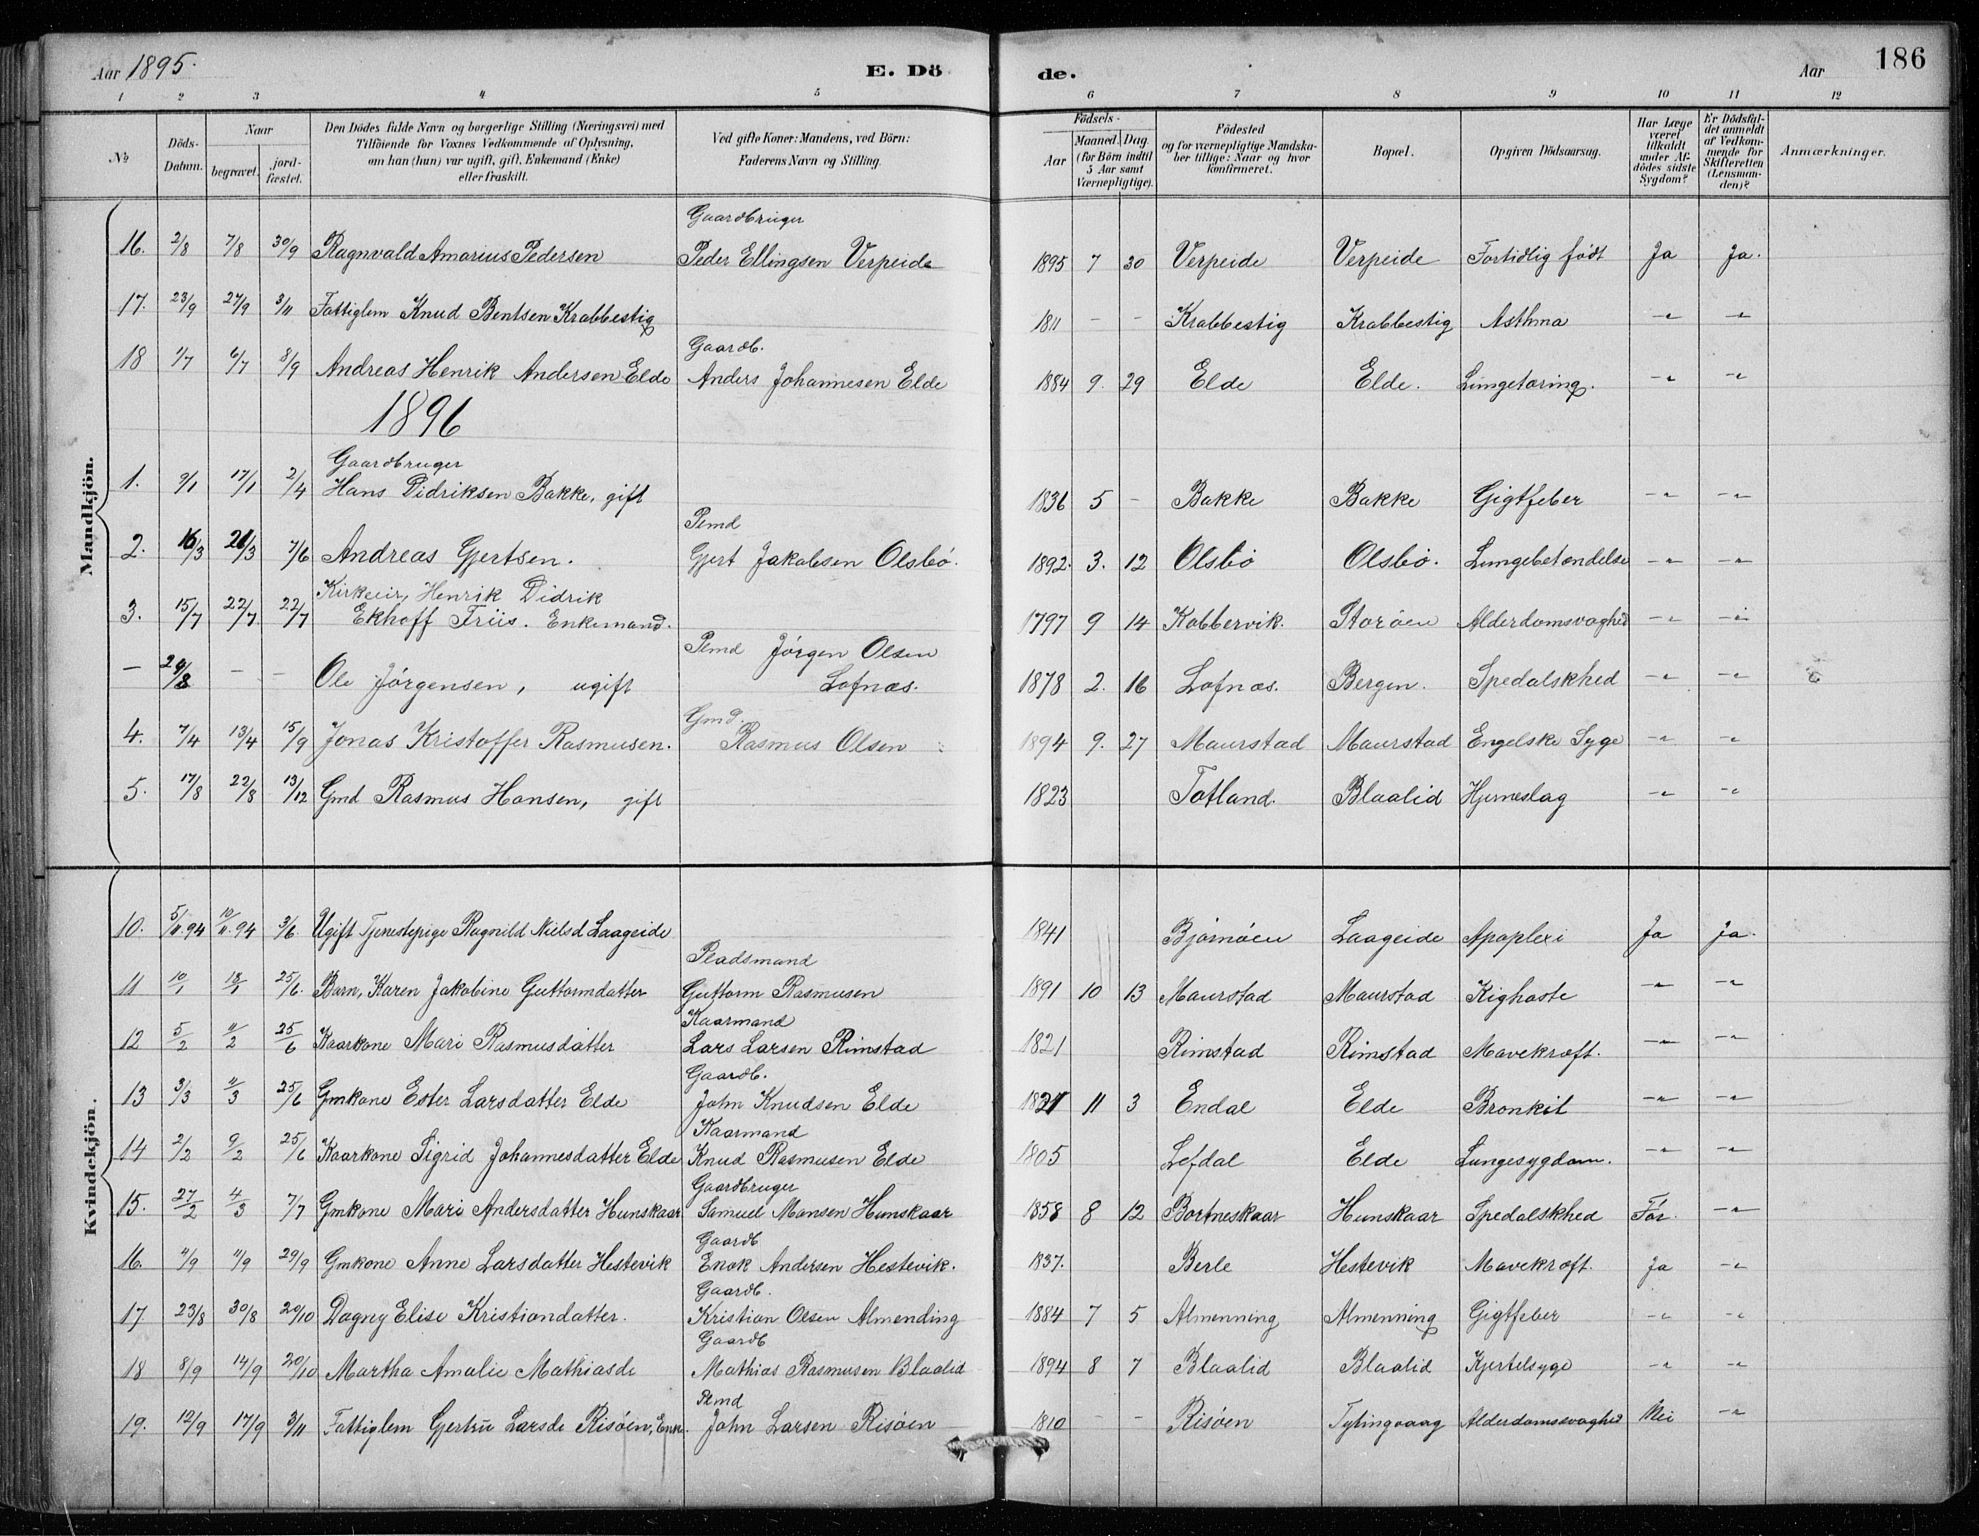 Aar 1895.
E. Dö
de.
Aar
186
1 2 3 4 5 6 7 8 9 10 11 12
№
Döds-Datum.
Naar
begravet.
jord-fæstet.
Den Dödes fulde Navn og borgerlige Stilling (Næringsvei) med
Tilföiende for Voxnes Vedkommende af Oplysning,
om han (hun) var ugift, gift, Enkemand (Enke)
eller fraskilt.
Ved gifte Koner: Mandens, ved Börn:
Faderens Navn og Stilling.
Födsels-
Aar
Maaned. Dag.
(for Börn indtil
5 Aar samt
Værnepligtige).
Födested
og for værnepligtige Mandska-
ber tillige: Naar og hvor
konfirmeret.
Bopæl.
Opgiven Dödsaarsag.
Har Læge
været
tilkaldt
under Af-
dödes sidste
Sygdom?
Er Dödsfal-
det anmeldt
af Vedkom-
mende for
Skifteretten
(Lensman-
den)?
Anmærkninger.
Mandkjön.
Gaardbruger
16. 2/8 7/8 30/9 Ragnvald Amarius Pedersen Peder Ellingsen Verpeide 1895 7 30 Verpeide Verpeide Fortidlig født Ja Ja.
17. 23/9 27/9 3/11 Fattiglem Knud Bentsen Krabbestig 1811 - - Krabbestig Krabbestig Asthma -"- -"-
Gaardb.
18 1/7 6/7 8/9 Andreas Henrik Andersen Elde Anders Johannesen Elde 1884 9. 29 Elde Elde. Lungetæring. -"- -"-
1896
Gaardbruger
1. 9/1 17/1 2/4 Hans Didriksen Bakke, gift 1836 5 - Bakke Bakke Gigtfeber -"- -"-
Plmd
2. 16/3 21/3 7/6 Andreas Gjertsen. Gjert Jakobsen Olsbö. 1892. 3. 12 Olsbö Olsbö. Lungebetændelse -"- -"-
Kirkeeir, Henrik Didrik
3. 15/7 22/7 22/7 Ekhoff Friis. Enkemand. 1797 9 14 Kobbervik. Storöen Alderdomsvaghed -"- -"-
Plmd Jörgen Olsen
- 29/8 - - Ole Jörgensen, ugift Lofnæs. 1878 2. 16 Lofnæs. Bergen. Spedalskhed -"- -"-
Gmd.
4. 7/4 13/4 15/9 Jonas Kristoffer Rasmusen. Rasmus Olsen 1894 9. 27 Maurstad Maurstad Engelske Syge -"- -"-
5. 17/8 22/8 13/12 Gmd Rasmus Hansen, gift 1823 Totland. Blaalid Hjerneslag -"- -"-
Kvindekjön.
10. 5/11.94 10/11.94 3/6. Ugift Tjenestepige Ragnild Nielsd Laageide 1841 Björnöen Laageide Apoplexi Ja Ja.
Pladsmand
11 10/1 18/1 25/6. Barn, Karen Jakobine Guttormdatter Guttorm Rasmusen 1891 10 13 Maurstad Maurstad Kighoste -"- -"-
Kaarmand
12 5/2 11/2 25/6 Kaarkone Mari Rasmusdatter Lars Larsen Rimstad 1821 Rimstad Rimstad Mavekræft. -"- -"-
Gaardb.
13 3/3 11/3 25/6 Gmkone Ester Larsdatter Elde John Knudsen Elde 1821 11 3 Endal Elde Bronkit -"- -"-
Kaarmand
14 2/2 9/2 25/6 Kaarkone Sigrid Johannesdatter Elde Knud Rasmusen Elde 1805 Lefdal Elde Lungesygdom. -"- -"-
Gaardbruger
15. 27/2 4/3 7/7 Gmkone Mari Andersdatter Hunskaar Samuel Monsen Hunskaar 1858 8 12 Bortneskaar Hunskaar Spedalskhed Før. -"-
Gaardb
16. 4/9 11/9 29/9 Gmkone Anne Larsdatter Hestevik Enok Andersen Hestevik. 1837. Berle Hestevik Mavekræft. Ja -"-
Gaardb.
17 23/8 30/8 20/10 Dagny Elise Kristiandatter. Kristian Olsen Almending 1884 7 5 Almenning Almenning Gigtfeber -"- -"-
Gaardb
18 8/9 14/9 20/10 Martha Amalie Mathiasda Mathias Rasmusen Blaalid 1894 8 7 Blaalid Blaalid Kjertelsyge -"- -"-
Plmd
19. 12/9 17/9 3/11 Fattiglem Gjertru Larsda Risöen, Enke. John Larsen Risöen 1810 - - Risöen Tytingvaag Alderdomsvaghed Nei -"-